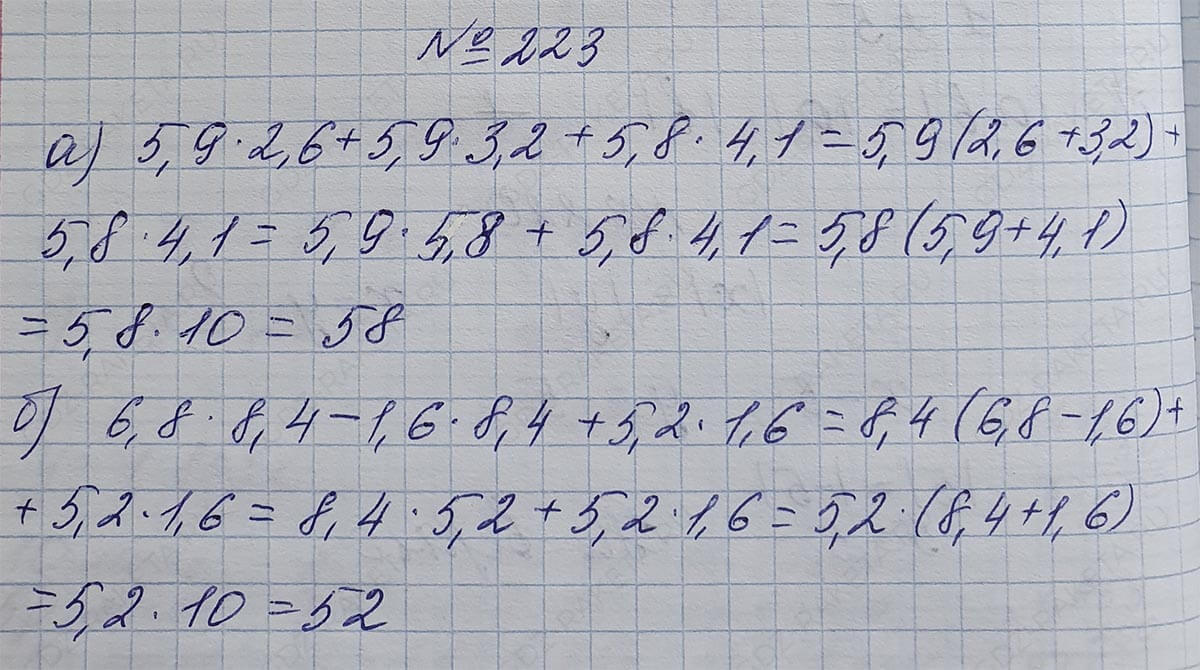 № 223
а) 5,9 · 2,6 + 5,9 · 3,2 + 5,8 · 4,1 = 5,9 (2,6 + 3,2) +
5,8 · 4,1 = 5,9 · 5,8 + 5,8 · 4,1 = 5,8 (5,9 + 4,1)
= 5,8 · 10 = 58
б) 6,8 · 8,4 - 1,6 · 8,4 + 5,2 · 1,6 = 8,4 (6,8 - 1,6) +
+ 5,2 · 1,6 = 8,4 · 5,2 + 5,2 · 1,6 = 5,2 · (8,4 + 1,6)
= 5,2 · 10 = 52